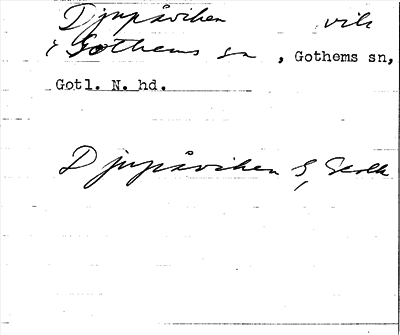 Djupåviken vik
i Gothems sn , Gothems sn,
Gotl. N. hd.
Djupåviken S,